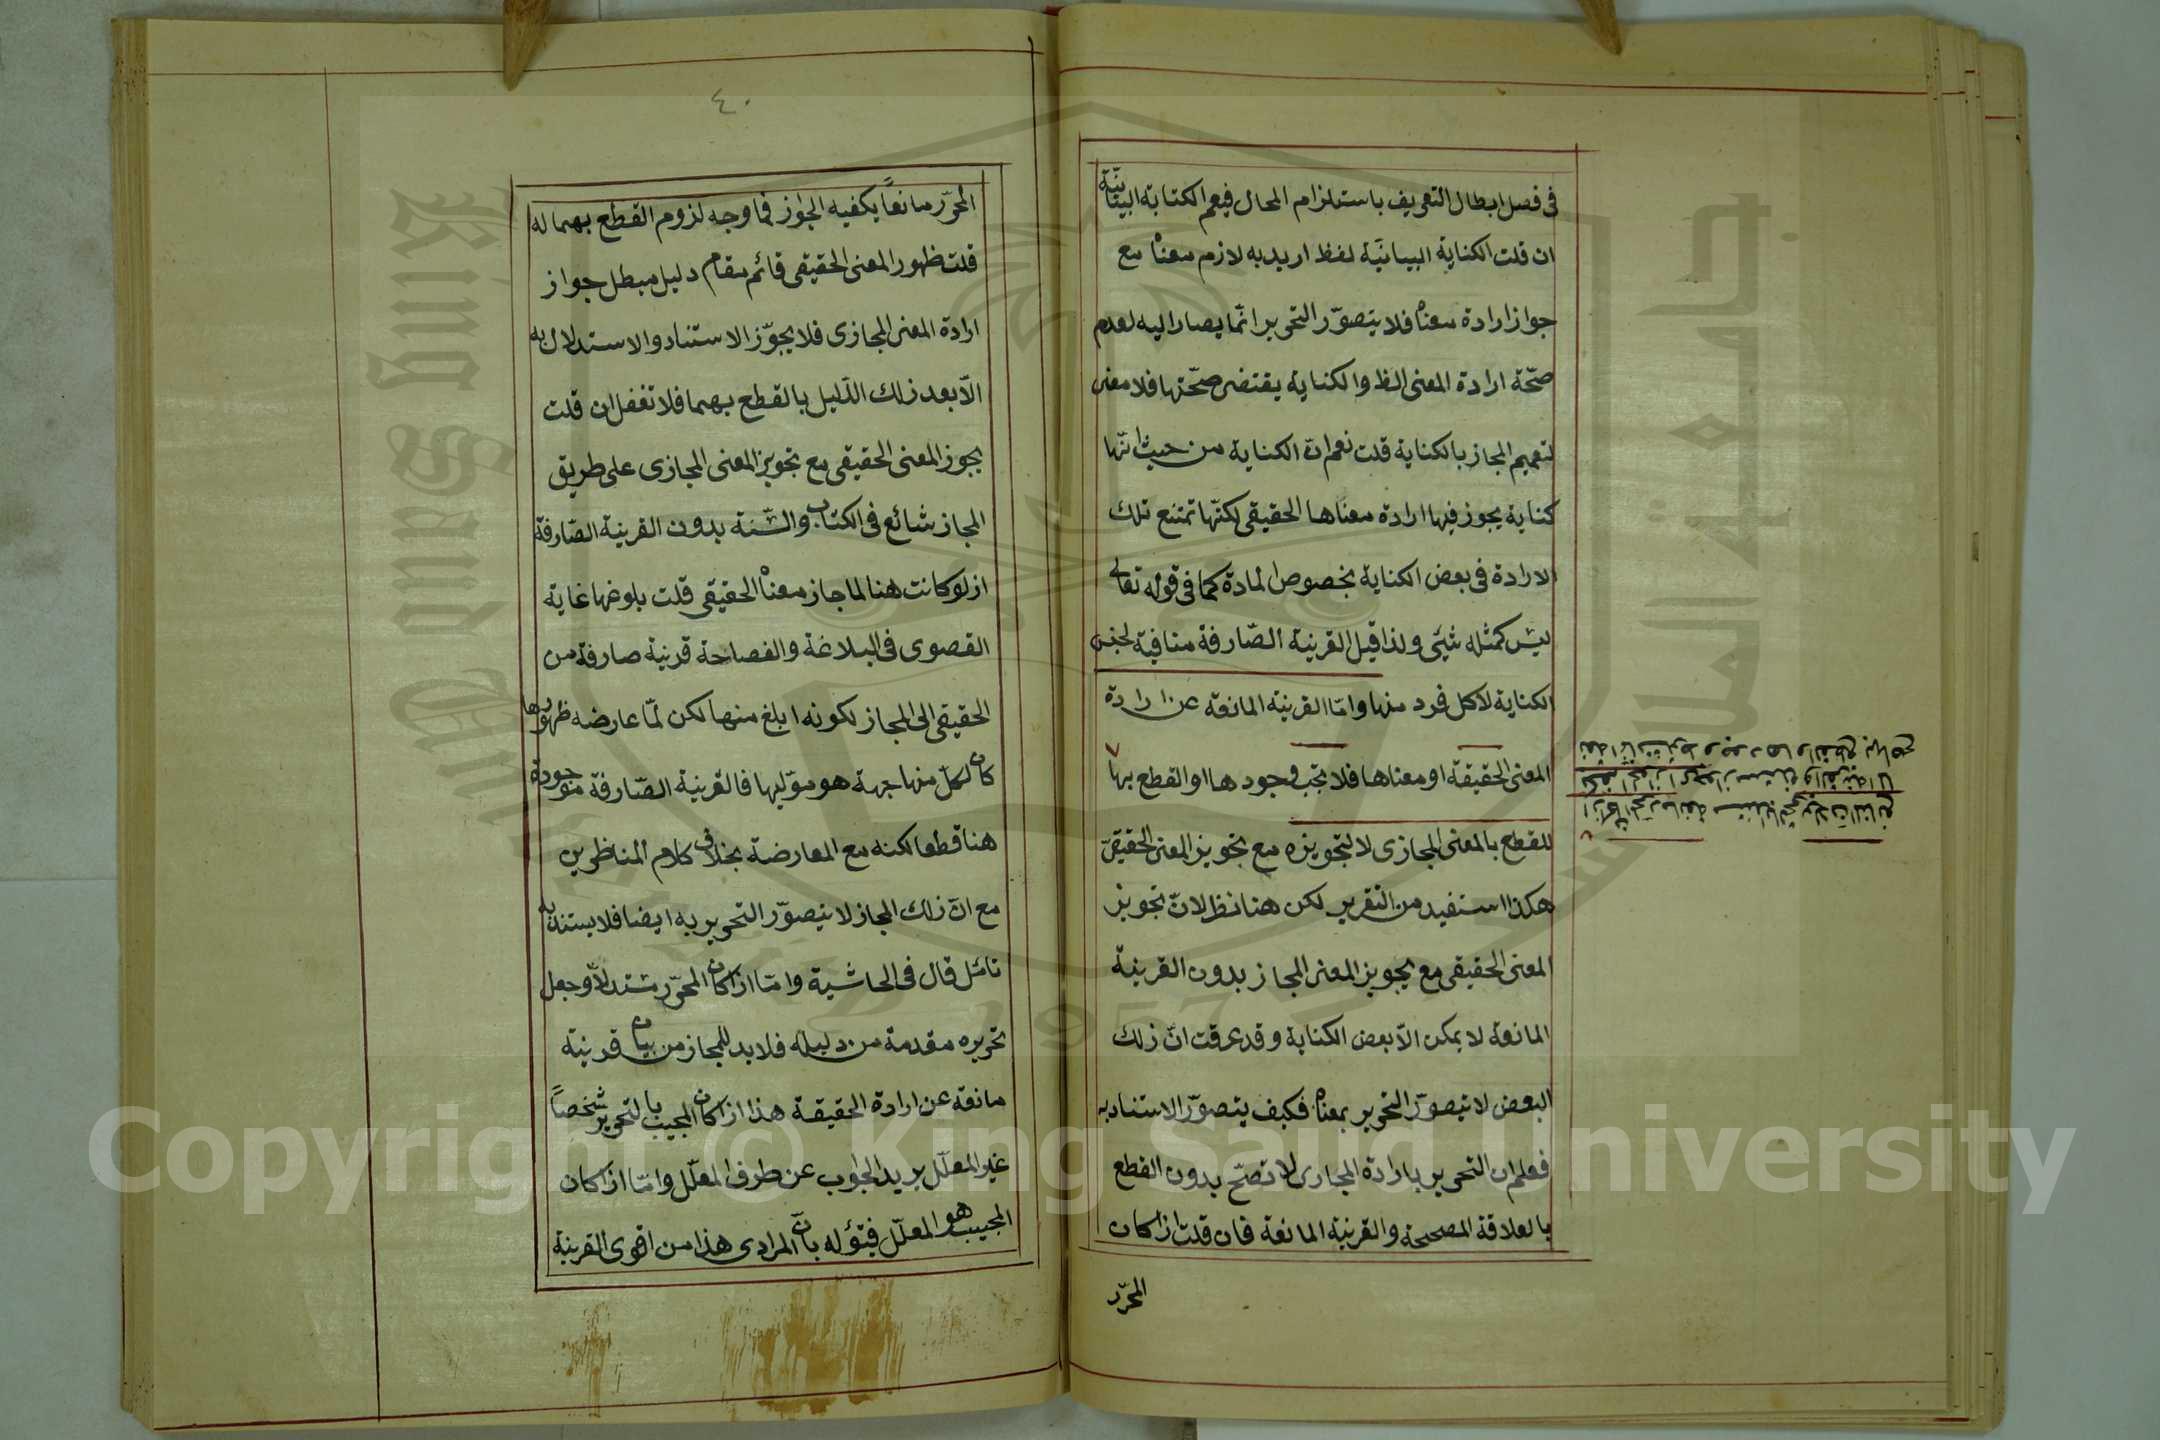 فى فصل ابطال التعريف باستلزام المحال فيعم الكناية البيانيّة
ان قلت الكناية البيانيّة لفظ اريد به لازم معناه مع
جواز ارادة معناه فلا يتصوّر التحرير انّما يصار اليه لعدم
صحّة ارادة المعنى الظ والكناية يقتضى صحّتها فلا معنى
لتعميم المجاز بالكناية قلت نعم انّ الكناية من حيث انّها
كناية يجوز فيها ارادة معناها الحقيقى لكنّها تمتنع تلك
الارادة فى بعض الكناية بخصوص المادة كما فى قوله تعالى
ليس كمثله شئى ولذا قيل القرينة الصّارفة منافية لجنس
الكناية لا كل فرد منها وامّا القرينة المانعة عن ارادة
المعنى الحقيقة او معناها فلا تجب وجودها او القطع بها
للقطع بالمعنى المجازى لا لتجويزه مع تجويز المعنى الحقيقىّ
هكذا استفيد من التقرير لكن هنا نظر لانّ تجويز
المعنى الحقيقى مع تجويز المعنى المجاز بدون القرينة
المانعة لا يمكن الّا بعض الكناية وقد عرفت انّ ذلك
البعض لا يتصوّر التحرير بمعناه فكيف يتصوّر الاستناد به
فعلم ان التحرير بارادة المجازى لا تصحّ بدون القطع
بالعلاقة المصححة والقرينة المانعة فان قلت اذا كان
المحرّر
المحرّر مانعًا يكفيه الجواز فما وجه لزوم القطع بهما له
قلت ظهور المعنى الحقيقى قائم مقام دليل مبطل جواز
ارادة المعنى المجازى فلا يجوّز الاستناد والاستدلال به
الّا بعد ذلك الدّليل بالقطع بهما فلا تغفل ان قلت
يجوز المعنى الحقيقى مع تجويز المعنى المجازى على طريق
المجاز شائع فى الكتاب والسّنة بدون القرينة الصّارفة
اذ لو كانت هنا لما جاز معناه الحقيقى قلت بلوغها غاية
القصوى فى البلاغة والفصاحة قرينة صارفة من
الحقيقى الى المجاز لكونه ابلغ منها لكن لمّا عارضه ظهورها
كان لكلّ منها جهة هو مولّيها فالقرينة الصّارفة موجودة
هنا قطعا لكنه مع المعارضة بخلاف كلام المناظرين
مع انّ ذلك المجاز لا يتصوّر التحرير به ايضا فلا يستند به
تأمّل قال فى الحاشية وامّا اذا كان المحرّر مستدلّا وجعل
تحريره مقدمة من دليله فلا بد للمجاز من بيان قرينة
مانعة عن ارادة الحقيقة هذا اذا كان المجيب بالتحرير شخصاً
غير المعلّل يريد الجواب عن طرف المعلّل وامّا اذا كان
المجيب هو المعلّل فيتوله بانّ المرادى هذا من اقوى القرينة
٤٠